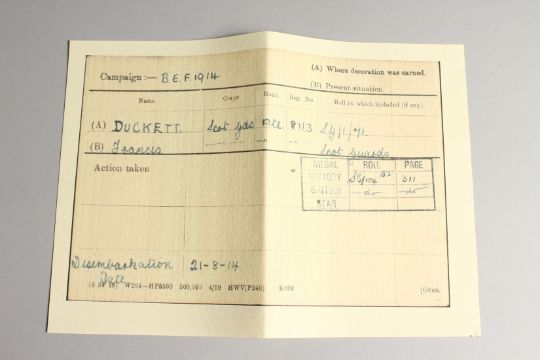 Campaign :— B.E.F. 1914
(A) Where decoration was earned.
(B) Present situation.
Name Corps Rank Reg. No. Roll on which included (if any)
(A) DUCKETT Scot Gds Pte 8113 SG/1/
(B) Frances Scot Guards
Action taken
MEDAL ROLL PAGE
VICTORY SG/104 B2 311
BRITISH —do— —do—
STAR
Disembarkation 21-8-14
Date
W234—HP5590 500,000 4/19 HWV(P240) K608
[Over.